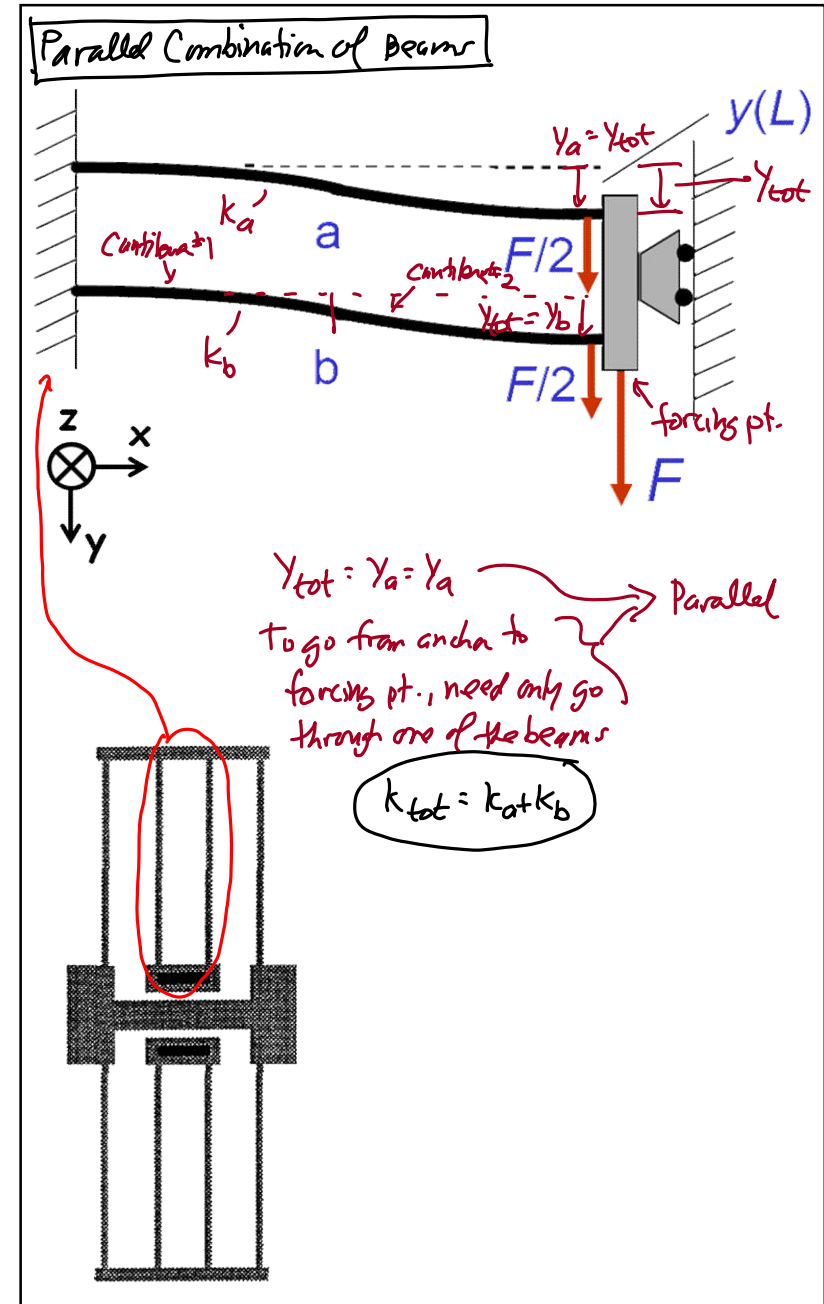 Parallel Combination of Beams
y(L)
ya = ytot
ytot
ka
a
F/2
Cantilever #1
cantilever #2
ytot = yb
kb
b
F/2
forcing pt.
F
z
x
y
Ytot = Ya = Ya
Parallel
To go from anchor to
forcing pt., need only go
through one of the beams
ktot = ka + kb